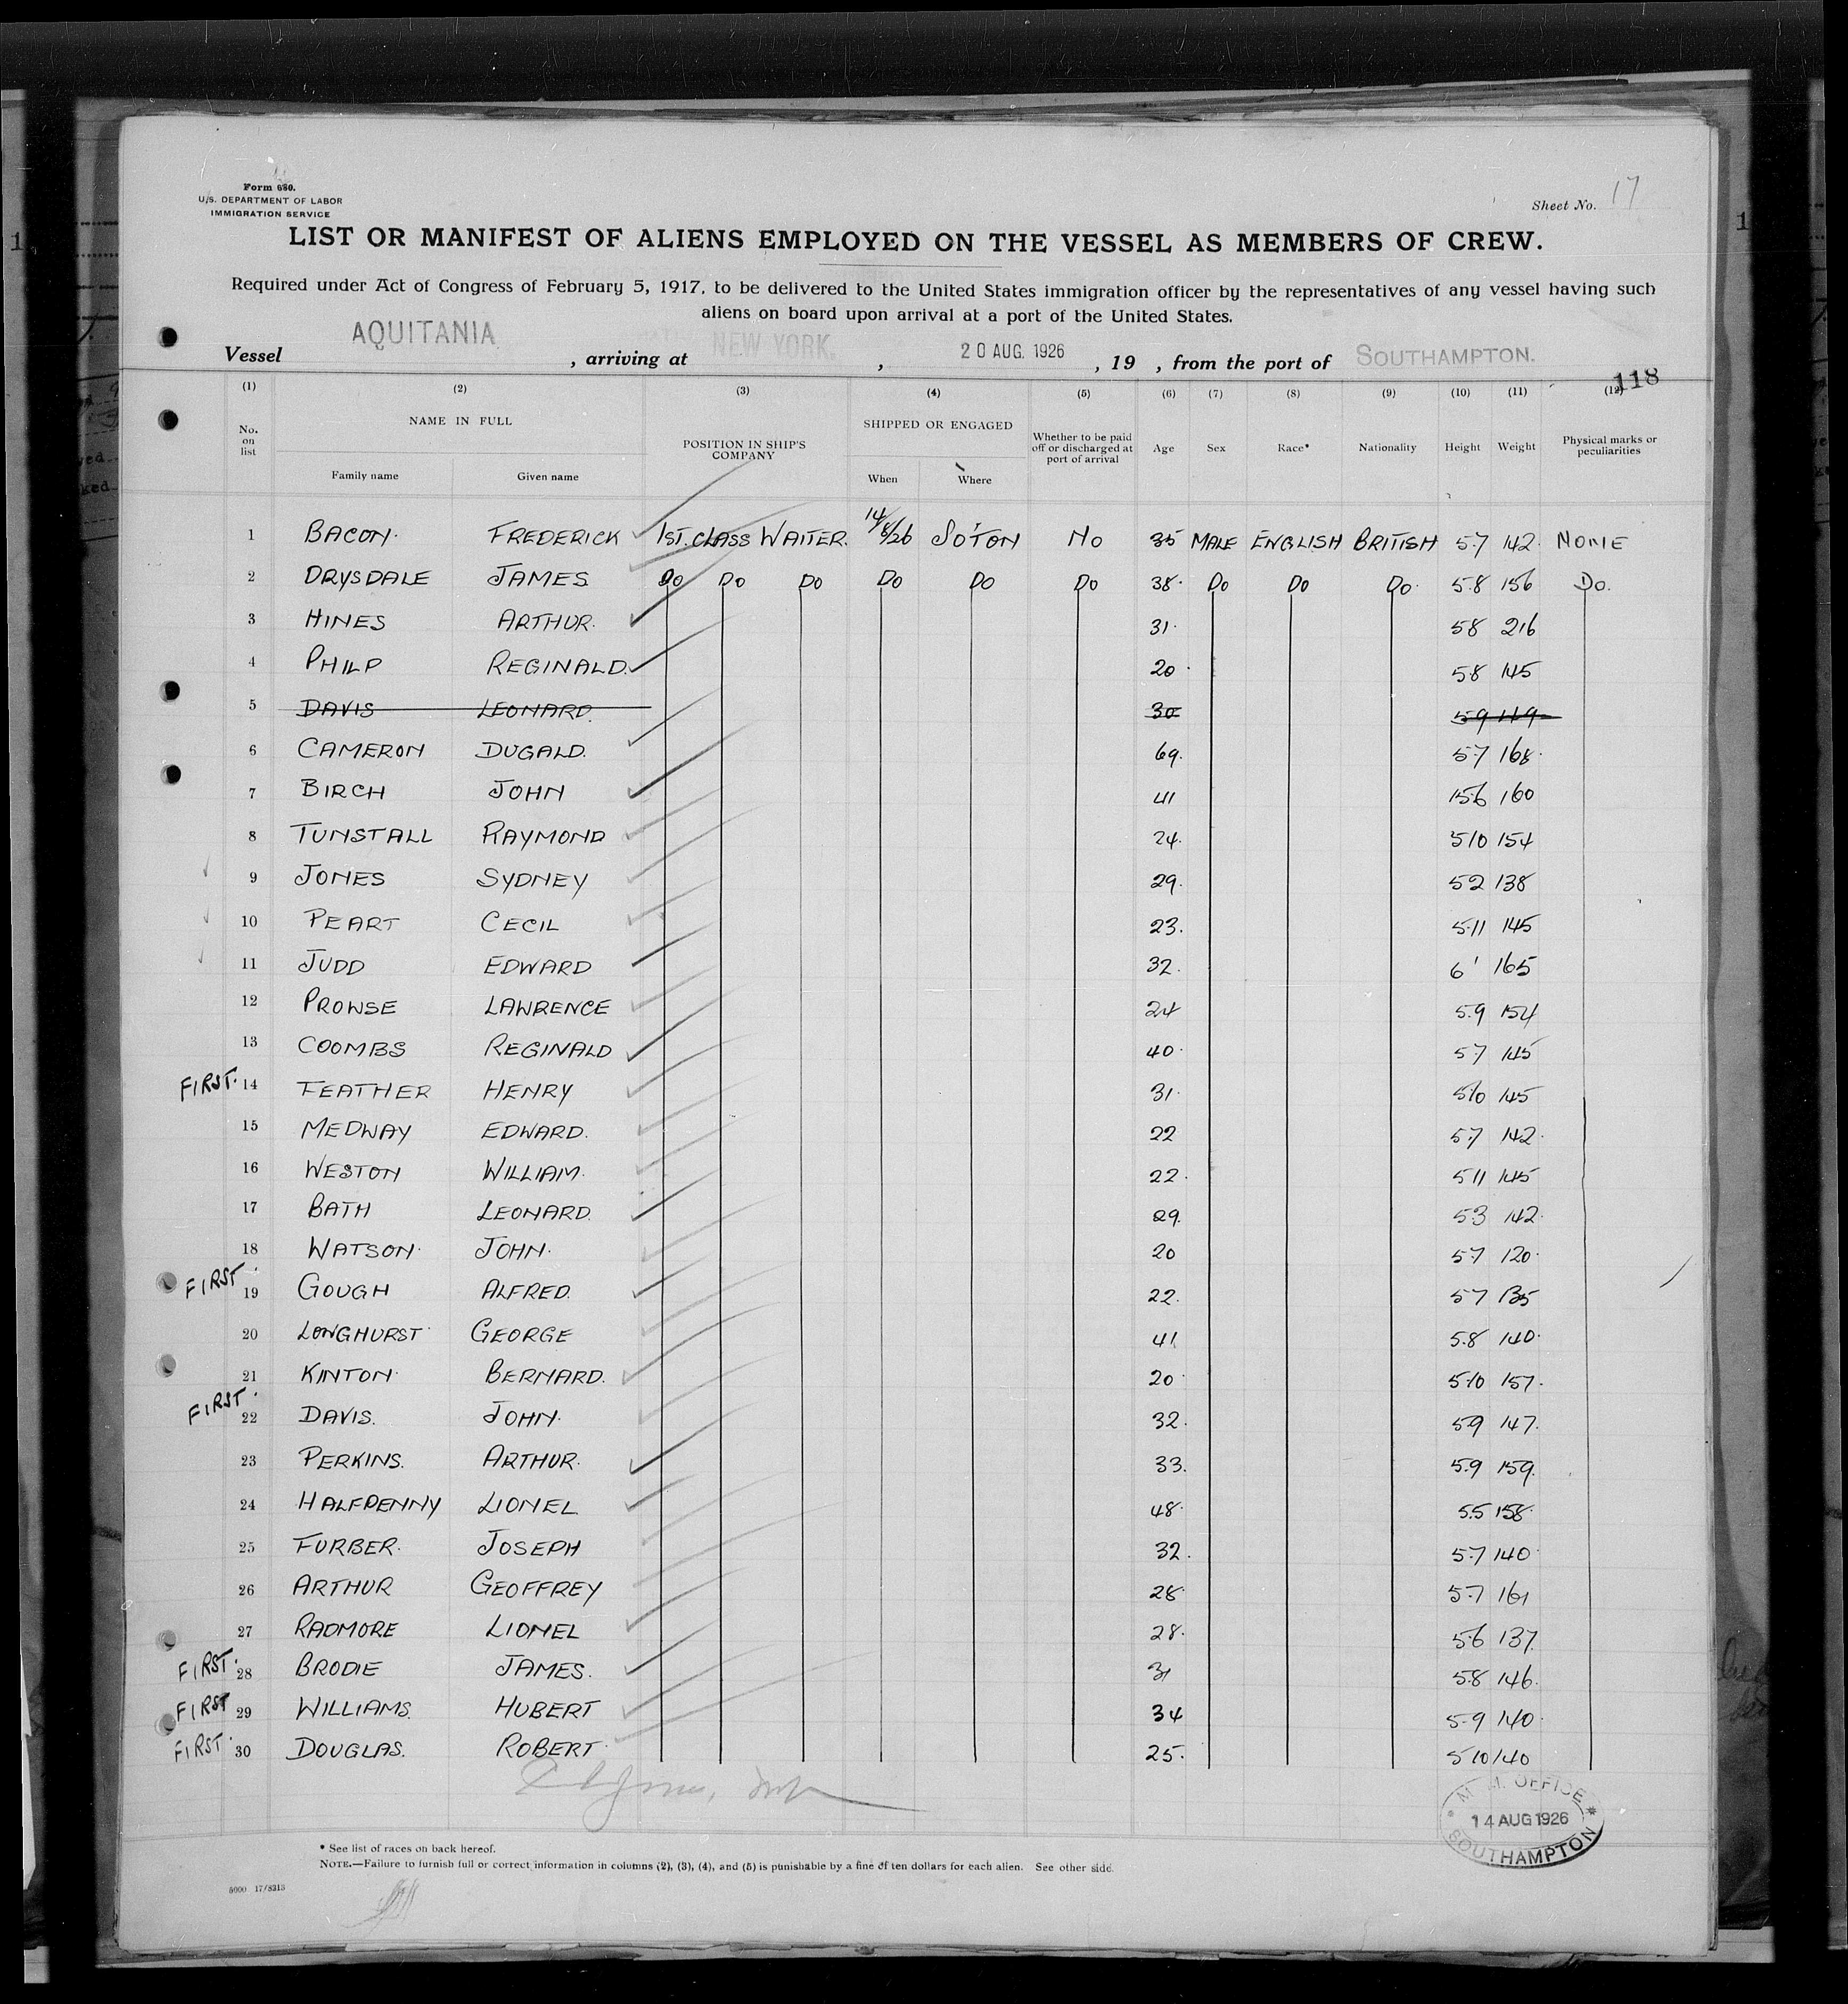 Form 680.
U.S. DEPARTMENT OF LABOR
IMMIGRATION SERVICE
Sheet No. 17
LIST OR MANIFEST OF ALIENS EMPLOYED ON THE VESSEL AS MEMBERS OF CREW.
Required under Act of Congress of February 5, 1917, to be delivered to the United States immigration officer by the representatives of any vessel having such
aliens on board upon arrival at a port of the United States.
Vessel AQUITANIA, arriving at NEW YORK, 20 AUG. 1926, 19 , from the port of SOUTHAMPTON.
118
(1) (2) (3) (4) (5) (6) (7) (8) (9) (10) (11) (12)
No. on list NAME IN FULL POSITION IN SHIP'S COMPANY SHIPPED OR ENGAGED Whether to be paid off or discharged at port of arrival Age Sex Race* Nationality Height Weight Physical marks or peculiarities
Family name Given name When Where
1 BACON. FREDERICK 1ST. CLASS WAITER. 14/8/26 SO'TON NO 35 MALE ENGLISH BRITISH 5.7 142. NONE
2 DRYSDALE JAMES DO DO DO DO DO DO 38. DO DO DO. 5.8 156 DO.
3 HINES ARTHUR. 31. 58 216
4 PHILP REGINALD. 20. 58 145
5 DAVIS LEONARD. 30 59 149
6 CAMERON DUGALD. 69. 57 168.
7 BIRCH JOHN 41 56 160
8 TUNSTALL RAYMOND 24. 510 154
9 JONES SYDNEY 29. 52 138
10 PEART CECIL 23. 5.11 145
11 JUDD EDWARD 32. 6' 165
12 PROWSE LAWRENCE 24 5.9 154
13 COOMBS REGINALD 40. 57 145
FIRST. 14 FEATHER HENRY 31. 5.10 145
15 MEDWAY EDWARD. 22 5.7 142.
16 WESTON WILLIAM. 22. 511 145
17 BATH LEONARD. 29. 53 142.
18 WATSON. JOHN. 20 5.7 120.
FIRST. 19 GOUGH ALFRED. 22. 57 135
20 LONGHURST GEORGE 41 5.8 140.
21 KINTON. BERNARD. 20. 5.10 157.
FIRST. 22 DAVIS. JOHN. 32. 59 147.
23 PERKINS. ARTHUR. 33. 5.9 159.
24 HALFPENNY LIONEL 48. 5.5 158.
25 FURBER. JOSEPH 32. 5.7 140.
26 ARTHUR GEOFFREY 28. 5.7 161
27 RADMORE LIONEL 28. 5.6 137.
FIRST. 28 BRODIE JAMES. 31 5.8 146.
FIRST 29 WILLIAMS. HUBERT 34 5.9 140.
FIRST. 30 DOUGLAS. ROBERT. 25. 5 10 140
M. M. OFFICE
14 AUG 1926
SOUTHAMPTON
* See list of races on back hereof.
NOTE.—Failure to furnish full or correct information in columns (2), (3), (4), and (5) is punishable by a fine of ten dollars for each alien. See other side.
5000 17/8213